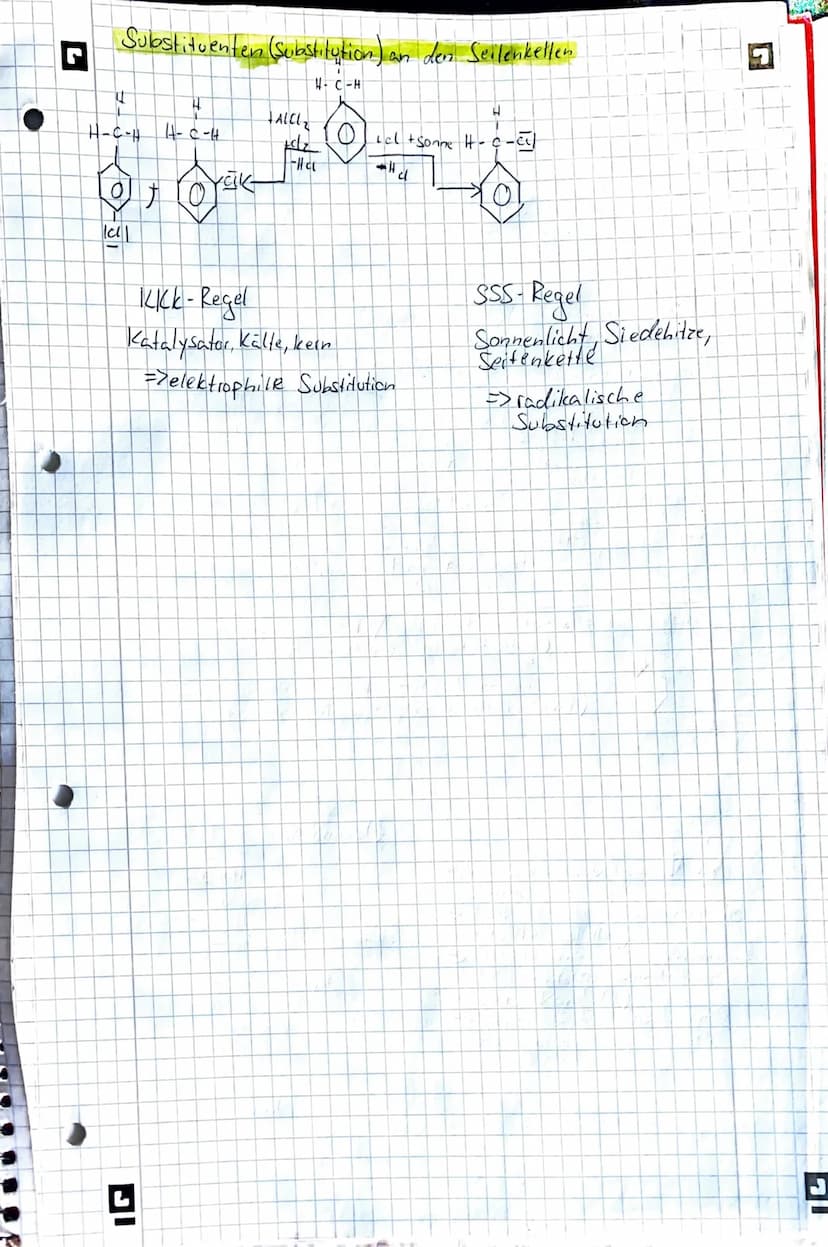 Substituenten (Substitution) an den Seitenketten
H
H-C-H
H
H-C-H
|Cl|
,
H
H-C-H
Cl
+AlCl₂
+Cl₂
-HCl
+Cl +Sonne
-HCl
H
H-C-Cl|
KKK-Regel
Katalysator, Kälte, kern
=>elektrophile Substitution
SSS-Regel
Sonnenlicht, Siedehitze,
Seitenkette
=> radikalische
Substitution